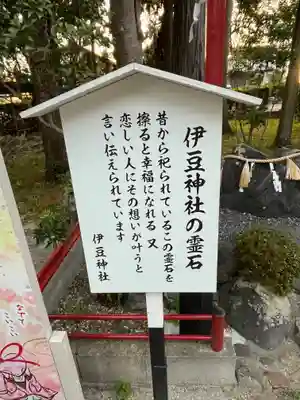 伊豆神社の霊石
昔から祀られているこの霊石を
擦ると幸福になれる 又
恋しい人にその想いが叶うと
言い伝えられています
伊豆神社